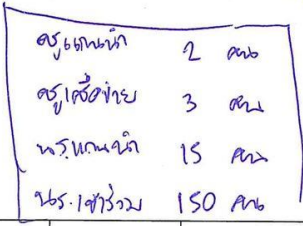 ครูแกนนำ 2 คน
ครูเครือข่าย 3 คน
นร.แกนนำ 15 คน
นร.เข้าร่วม 150 คน